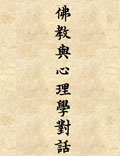 佛教與心理學對話